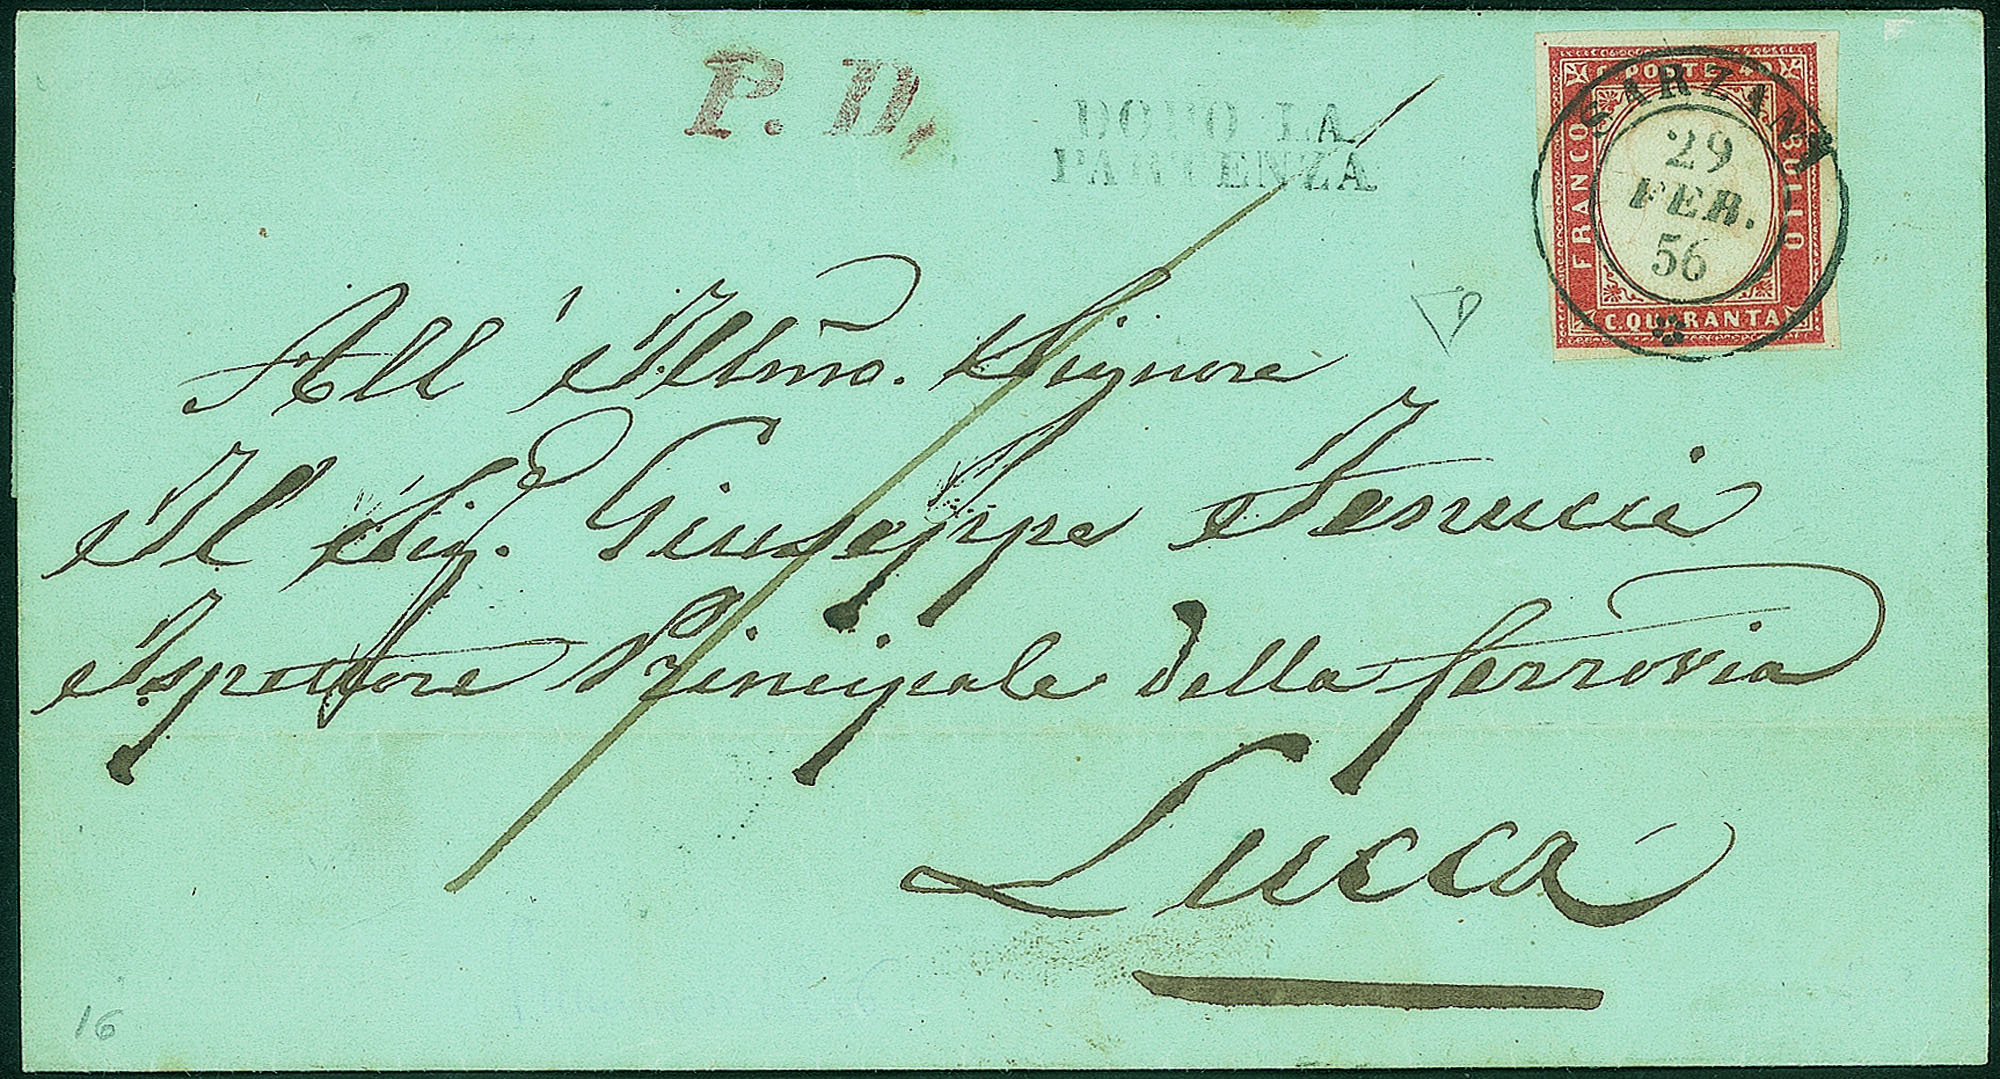 P. D.
DOPO LA
PARTENZA
C. POSTE 40
FRANCO
BOLLO
C. QUARANTA
SARZANA
29
FEB.
56
All' Illmo. Signore
Il Sig.e Giuseppe
Ispettore Principale della ferrovia
Lucca
16